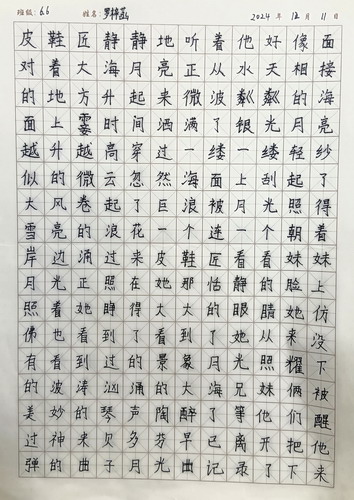 班级: 6.6 姓名: 罗梓菡 2024 年 12 月 11 日
皮鞋匠静静地听着他好像面
对着大海月亮正从水天相接
的地方升起来微波粼粼的海
面上霎时间洒满了银光月亮
越升越高穿过一缕一缕轻纱
似的微云忽然海面上刮起了
大风卷起了巨浪被月光照得
雪亮的浪花一个连一个朝着
岸边涌过来皮鞋匠看看妹妹
月光正照在她那恬静的脸上
照着她睁得大大的眼睛她仿
佛也看到了看到了她从来没
有看到过的景象月光照耀下
的波涛汹涌的大海兄妹俩被
美妙的琴声陶醉了等他们醒
过神来贝多芬早已离开把他
弹的曲子月光曲记录了下来